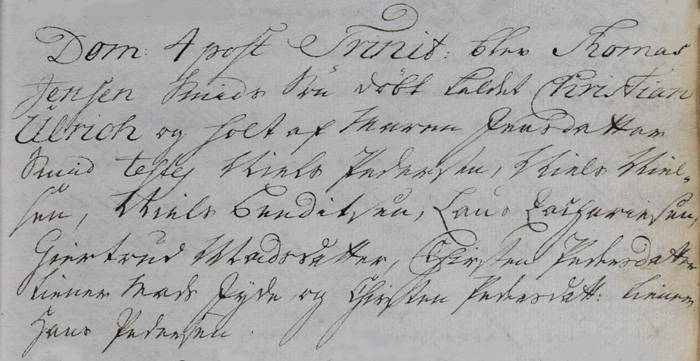 Dom: 4 post Trinit: blev Thomas
Jensen Smids Søn døbt kaldet Christian
Ulrich og holt af Maren Jensdatter
Smid testes Niels Pedersen, Niels Niel-
sen, Niels Benditsen, Laus Zachariesen,
Giertrud Madsdatter, Chirsten Pedersdatter
tiener Mads Jyde og Chirsten Pedersdatt: tiener
Hans Pedersen.